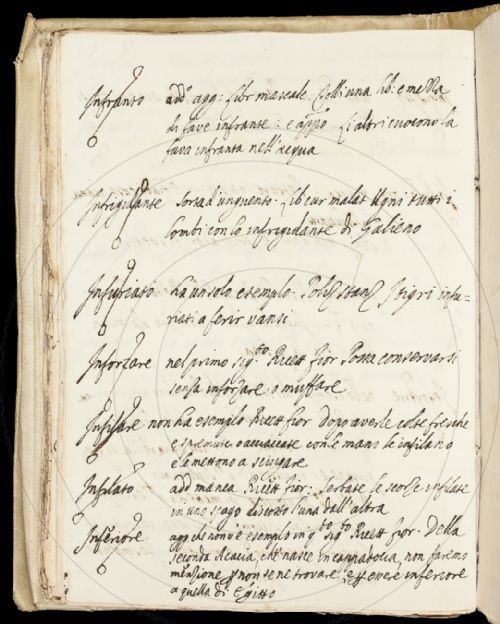 Infranto add.º agg: libr mascale
di fave infrante: e app.º li altri cuocono la
fava infranta nell'acqua
Infrigidante sorta d'unguento. Lib cur malat Ugni tutti i
lombi con lo infrigidante di Galieno
Infuriato ha un solo esemplo. Poliz stanz I tigri infu-
riati a ferir vansi
Inforzare nel primo sig.to Ricett fior Possa conservarsi
senza inforzare o muffare
Infilare non ha esemplo Ricett fior dopo averle colte fresche
e con le mani le infilano
e le mettono a seccare
Infilato add manca Ricett fior: serbate le scorze infilate
in uno spago discosto l'una dall'altra
Inferiore agg che non v'è esemplo in q.to sig.to Ricett fior. Della
seconda Acacia, che nasce in cappadocia, non faremo
menzione non se ne trovare, essere inferiore
a quella di Egitto